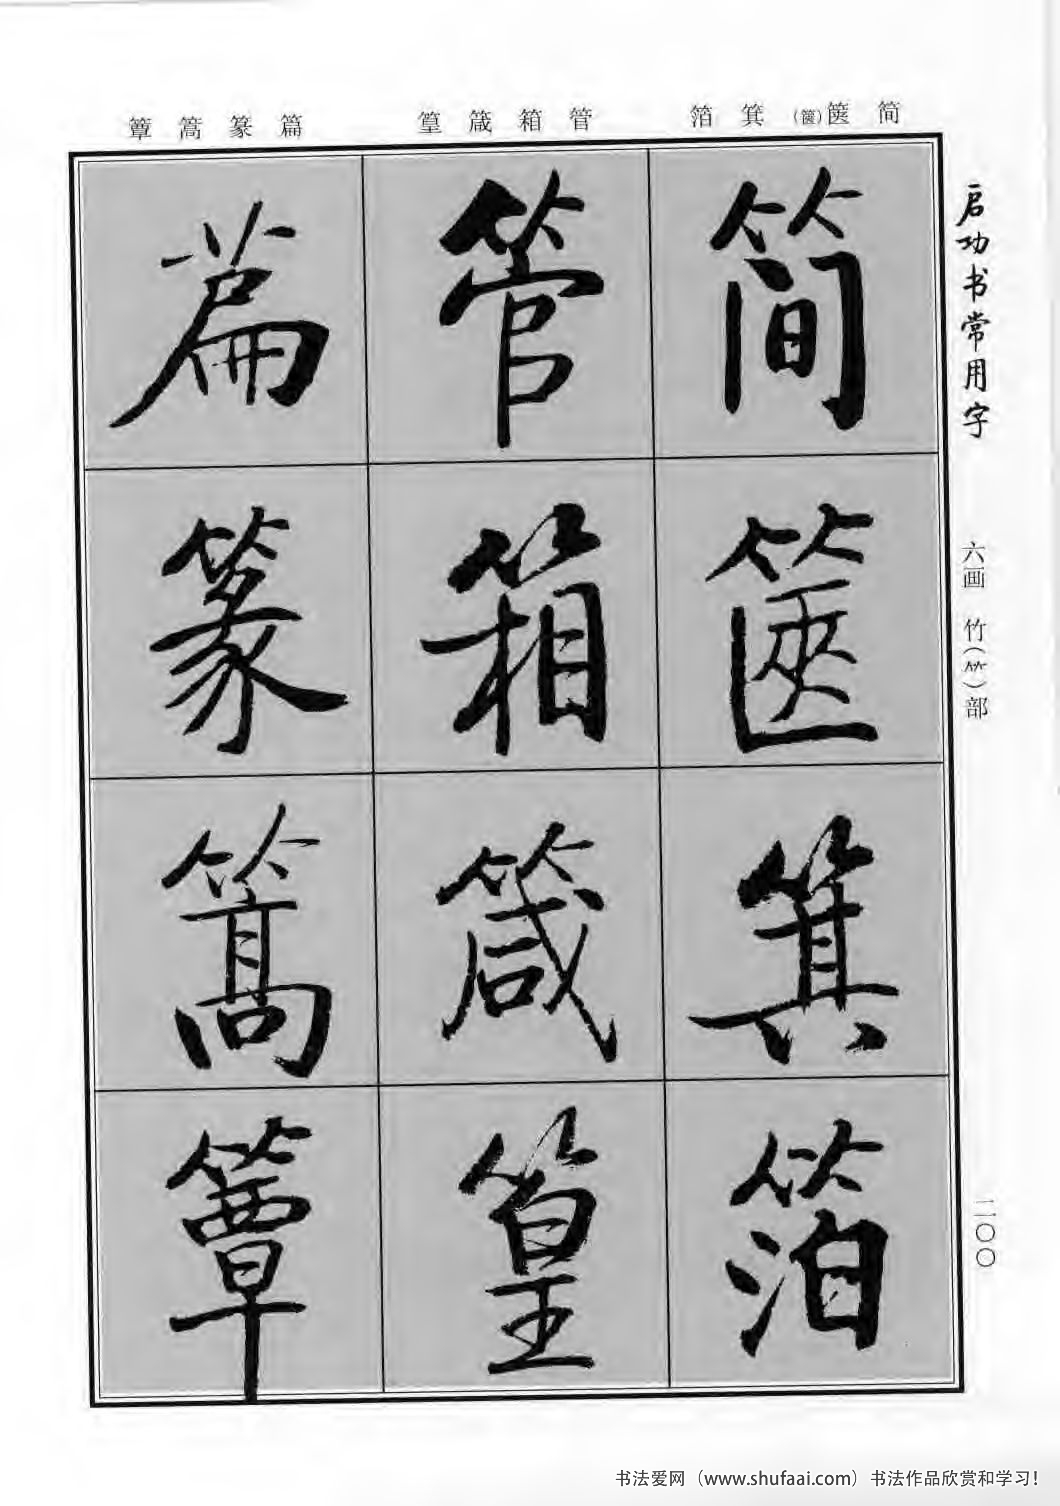 简 箧(篋) 箕 箔
管 箱 箴 篁
篇 篆 篙 簟
启功书常用字
六画 竹(⺮)部
二〇〇
简
箧
箕
箔
管
箱
箴
篁
篇
篆
篙
簟
书法爱网（www.shufaai.com）书法作品欣赏和学习！